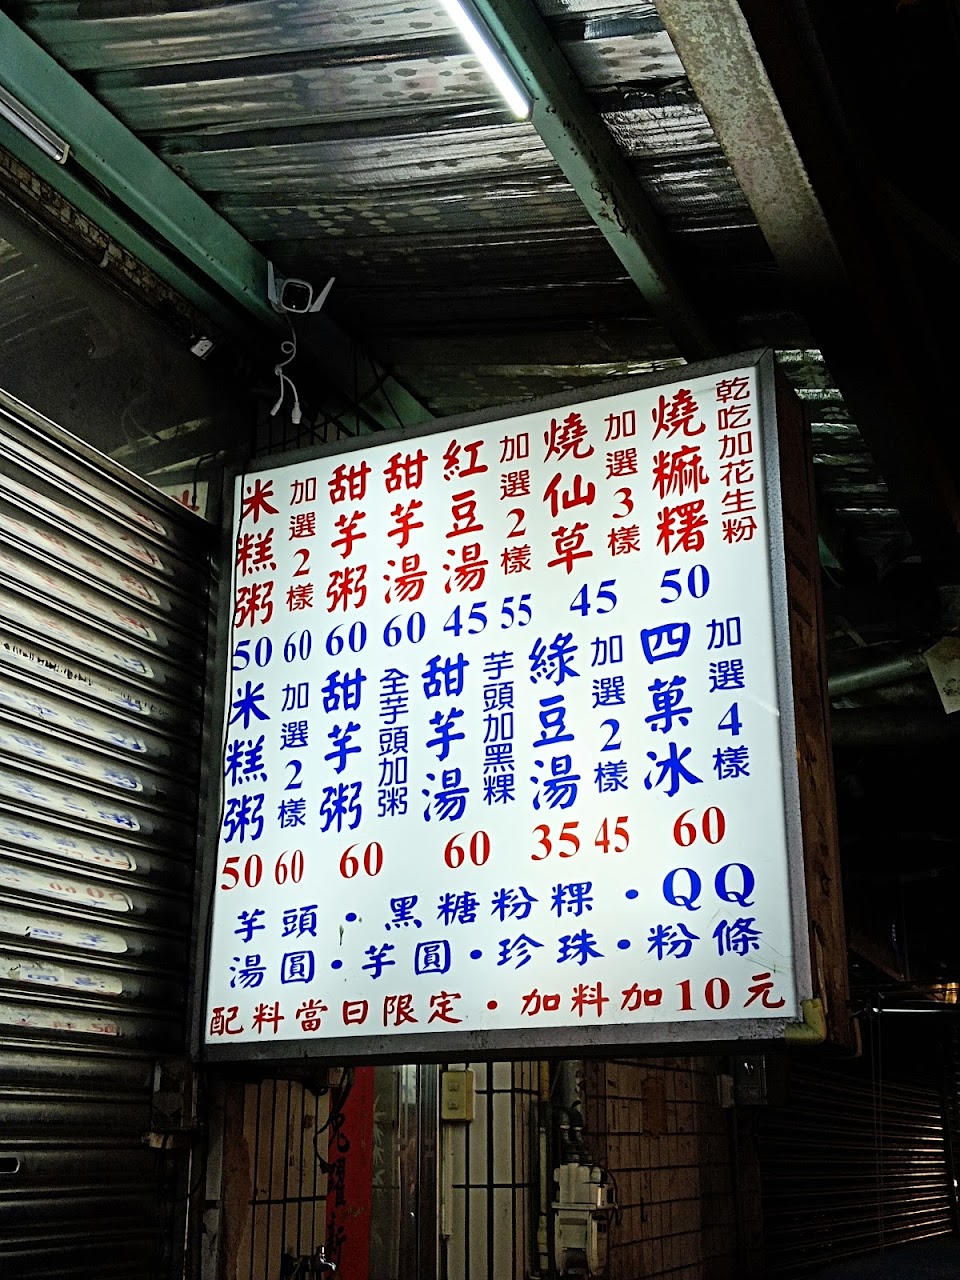 乾吃加花生粉
燒麻糬
50
加選3樣
燒仙草
45
加選2樣
55
紅豆湯
45
甜芋湯
60
甜芋粥
60
加選2樣
60
米糕粥
50
加選4樣
四菓冰
60
加選2樣
45
綠豆湯
35
芋頭加黑粿
甜芋湯
60
全芋頭加粥
甜芋粥
60
加選2樣
60
米糕粥
50
芋頭・黑糖粉粿・QQ
湯圓・芋圓・珍珠・粉條
配料當日限定・加料加10元